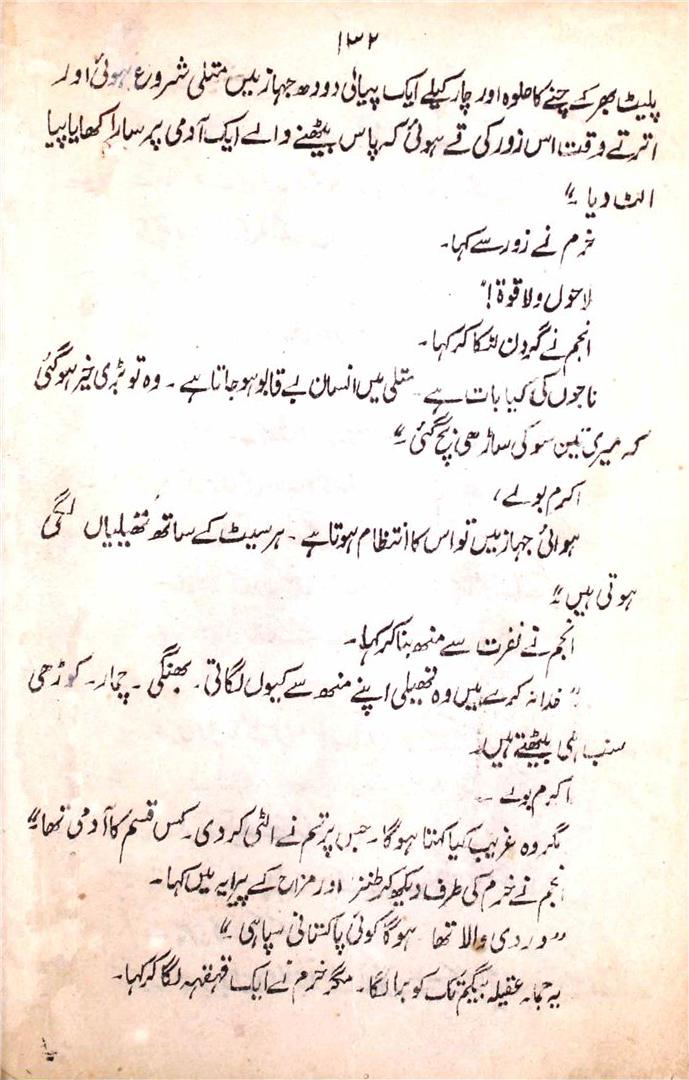 ۱۳۲
پلیٹ بھر کے چنے کا حلوہ اور چار کیلے ایک پیالی دودھ جہاز میں متلی شروع ہوئی اور
اترتے وقت اس زور کی قے ہوئی کہ پاس بیٹھنے والے ایک آدمی پر سارا کھایا پیا
الٹ دیا ۔"
خرم نے زور سے کہا۔
لاحول ولا قوۃ !"
انجم نے گردن لٹکا کر کہا۔
ناجوں کی کیا بات ہے ۔ متلی میں انسان بے قابو ہو جاتا ہے ۔ وہ تو بڑی خیر ہو گئی
کہ میری تین سو کی ساڑھی بچ گئی ۔"
اکرم بولے ،
ہوائی جہاز میں تو اس کا انتظام ہوتا ہے ۔ ہر سیٹ کے ساتھ تھیلیاں لگی
ہوتی ہیں ۔"
انجم نے نفرت سے منھ بنا کر کہا۔
" خدا نہ کرے میں وہ تھیلی اپنے منھ سے کیوں لگاتی ۔ بھنگی ۔ چمار ۔ کوڑھی
سب ہی بیٹھتے ہیں۔
اکرم بولے ۔
مگر وہ غریب کیا کہتا ہوگا ۔ جس پر تم نے الٹی کر دی ۔ کس قسم کا آدمی تھا ۔"
انجم نے خرم کی طرف دیکھ کر طنز اور مزاح کے پیرایہ میں کہا۔
" وردی والا تھا ہوگا کوئی پاکستانی سپاہی ۔"
یہ جملہ عقیلہ بیگم تک کو برا لگا ۔ مگر خرم نے ایک قہقہہ لگا کر کہا۔